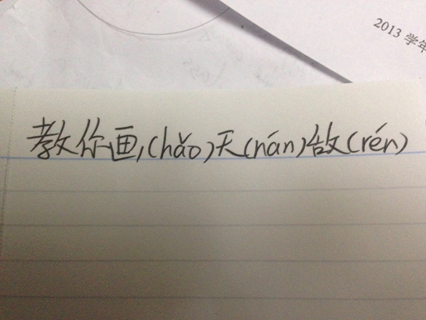 2013 学年
教你画,(hǎo)天(nán)故(rén)